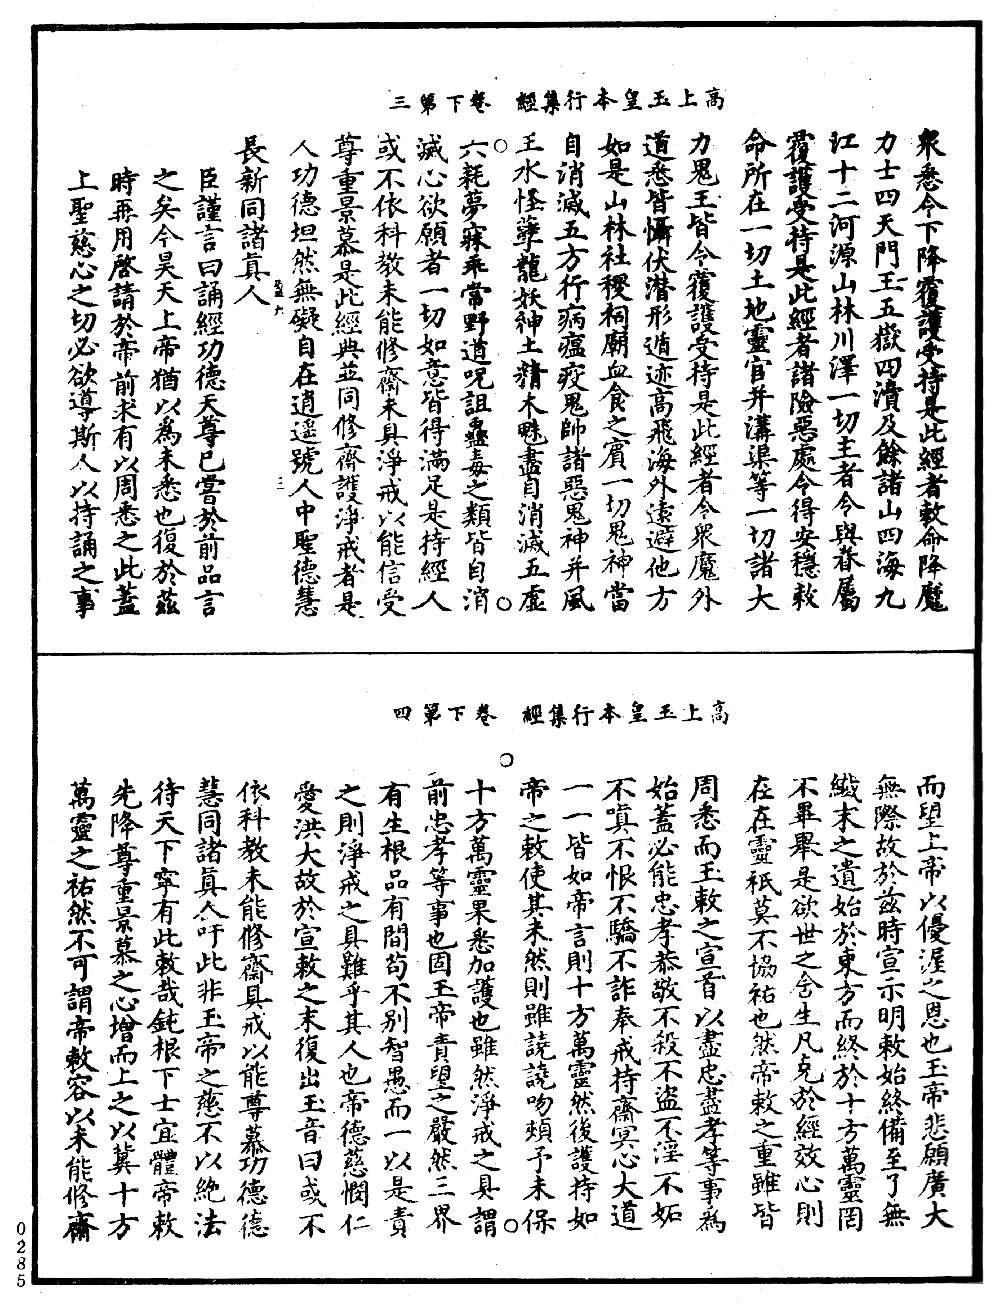 高上玉皇本行集經　卷下第三
衆悉令下降覆護受持是此經者敕命降魔
力士四天門王五嶽四瀆及餘諸山四海九
江十二河源山林川澤一切主者令與眷屬
覆護受持是此經者諸險惡處令得安穩敕
命所在一切土地靈官并溝渠等一切諸大
力鬼王皆令覆護受持是此經者令衆魔外
道悉皆懾伏潛形遁迹高飛海外遠避他方
如是山林社稷祠廟血食之賓一切鬼神當
自消滅五方行病瘟疫鬼帥諸惡鬼神并風
王水怪孽龍妖神土精木魅盡自消滅五虛
六耗夢寐乖常野道呪詛蠱毒之類皆自消
滅心欲願者一切如意皆得滿足是持經人
或不依科教未能修齋未具淨戒以能信受
尊重景慕是此經典並同修齋護淨戒者是
人功德坦然無礙自在逍遙號人中聖德慧
長新同諸眞人
臣謹言曰誦經功德天尊已嘗於前品言
之矣今昊天上帝猶以爲未悉也復於茲
時再用啓請於帝前求有以周悉之此蓋
上聖慈心之切必欲導斯人以持誦之事
高上玉皇本行集經　卷下第四
而望上帝以優渥之恩也玉帝悲願廣大
無際故於茲時宣示明敕始終備至了無
纖末之遺始於東方而終於十方萬靈罔
不畢畢是欲世之含生凡克於經效心則
在在靈祇莫不協祐也然帝敕之重雖皆
周悉而玉敕之宣首以盡忠盡孝等事爲
始蓋必能忠孝恭敬不殺不盜不淫不妬
不嗔不恨不驕不詐奉戒持齋冥心大道
一一皆如帝言則十方萬靈然後護持如
帝之敕使其未然則雖譊譊吻頰予未保
十方萬靈果悉加護也雖然淨戒之具謂
前忠孝等事也固玉帝責望之嚴然三界
有生根品有間苟不別智愚而一以是責
之則淨戒之具難乎其人也帝德慈憫仁
愛洪大故於宣敕之末復出玉音曰或不
依科教未能修齋具戒以能尊慕功德德
慧同諸眞人吁此非玉帝之慈不以絶法
待天下寧有此敕哉鈍根下士宜體帝敕
先降尊重景慕之心增而上之以冀十方
萬靈之祐然不可謂帝敕容以未能修齋
0285